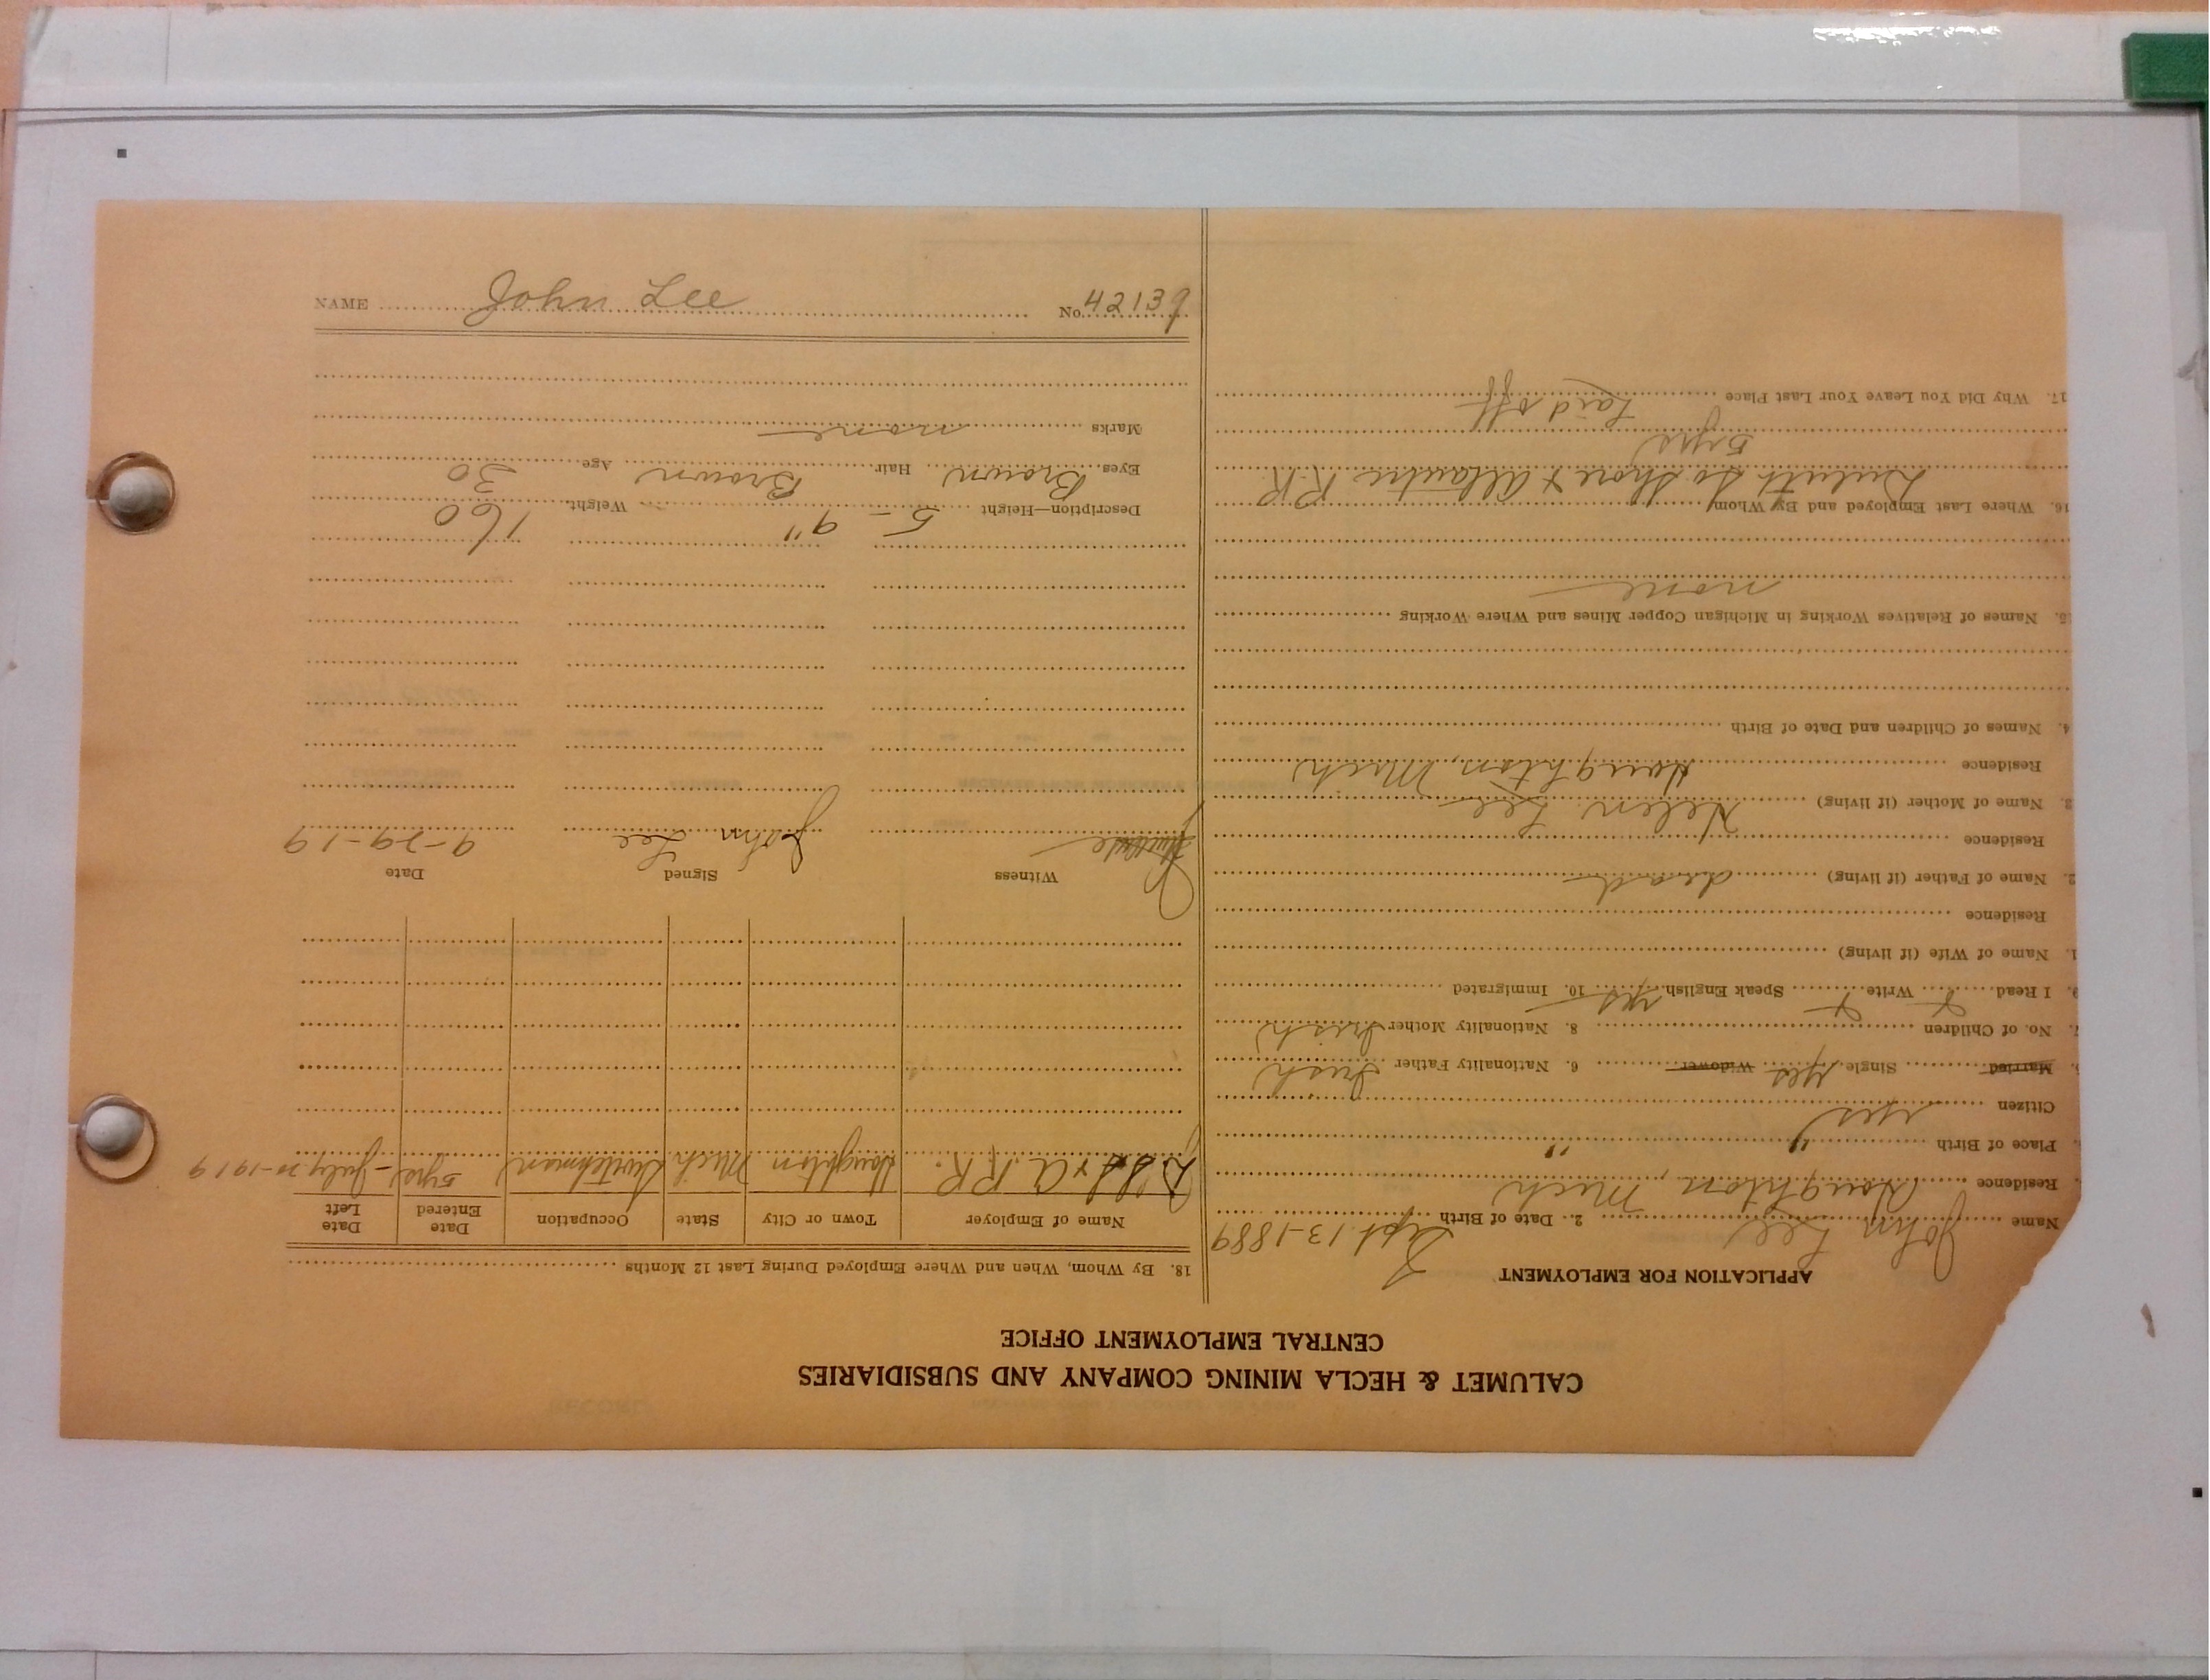 CALUMET & HECLA MINING COMPANY AND SUBSIDIARIES
CENTRAL EMPLOYMENT OFFICE
APPLICATION FOR EMPLOYMENT
Name John Lee 2. Date of Birth Sept 13-1889
Residence Houghton, Mich
Place of Birth " "
Citizen yes
Married Single yes Widower 6. Nationality Father Irish
7. No. of Children 8. Nationality Mother Irish
9. I Read X Write X Speak English yes 10. Immigrated
1. Name of Wife (if living)
Residence
2. Name of Father (if living) dead
Residence
3. Name of Mother (if living) Helen Lee
Residence Houghton, Mich
4. Names of Children and Date of Birth
15. Names of Relatives Working in Michigan Copper Mines and Where Working
none
16. Where Last Employed and By Whom Duluth So Shore & Atlantic R.R.
5 yrs
17. Why Did You Leave Your Last Place Laid off
18. By Whom, When and Where Employed During Last 12 Months
Name of Employer Town or City State Occupation Date Entered Date Left
D.S.S. & A. R.R. Houghton Mich Switchman 5 yrs - July 20-1919
Witness Signed Date
John Lee 9-29-19
Description—Height 5-9" Weight 160
Eyes Brown Hair Brown Age 30
Marks none
NAME John Lee No. 42139